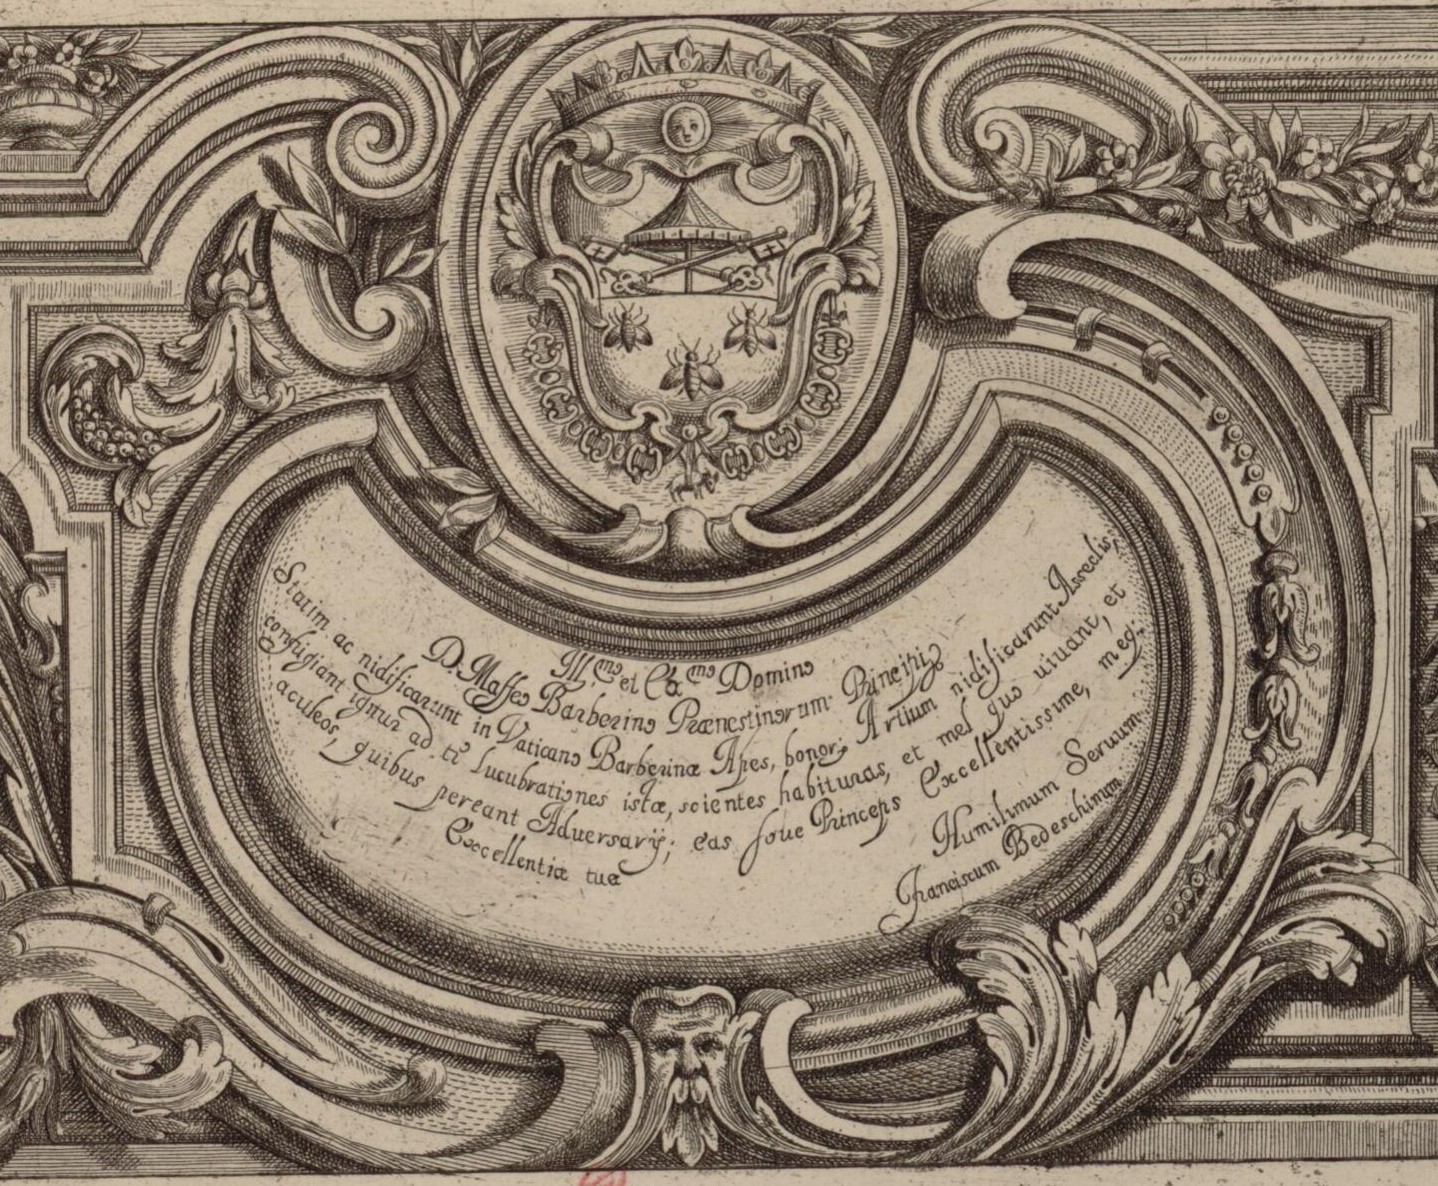 Ill.mo et Ex.mo Domino
D. Maffeo Barberino Prænestinorum Principi
Statim ac nidificarunt in Vaticano Barberinæ Apes, bonor; Artium nidificarunt Asseclis,
confugiant igitur ad te lucubrationes istæ, scientes habituras, et mel quo uiuant, et
aculeos, quibus pereant Adversarij; eas foue Princeps Excellentissime, meq;
Excellentiæ tuæ
Humilimum Seruum
Franciscum Bedeschinum